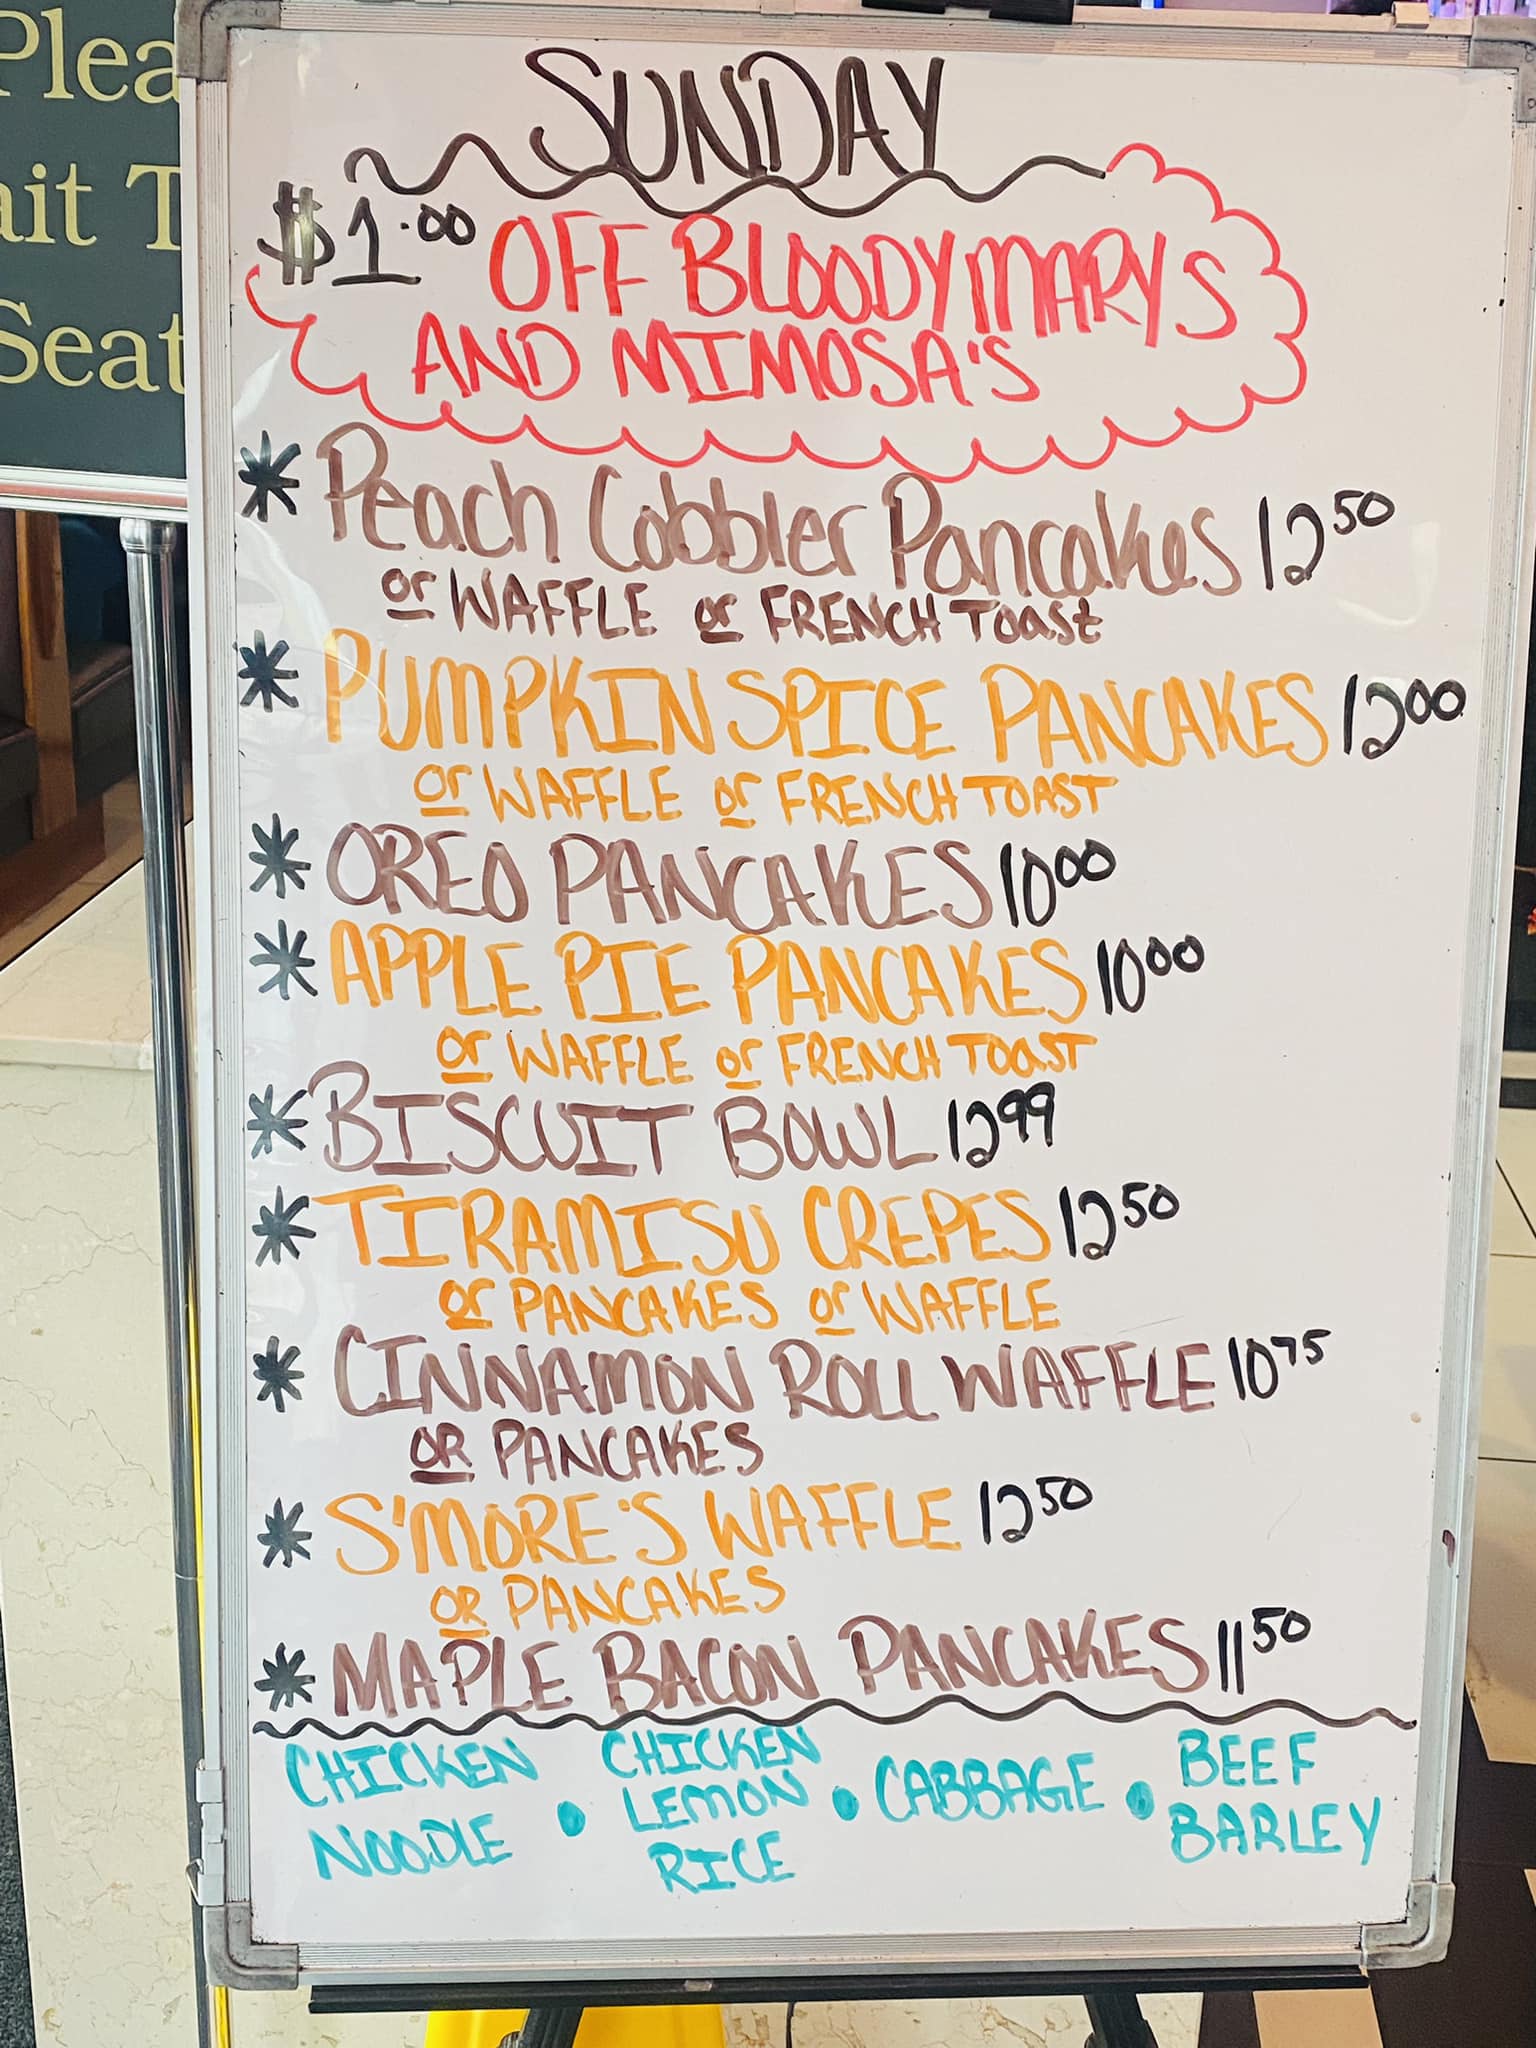 Plea
ait T
Seat
SUNDAY
$1.00 OFF BLOODYMARYS
AND MIMOSA'S
* Peach Cobbler Pancakes 12 50
or WAFFLE or FRENCH TOAST
* PUMPKIN SPICE PANCAKES 12 00
or WAFFLE or FRENCH TOAST
* OREO PANCAKES 10 00
* APPLE PIE PANCAKES 10 00
or WAFFLE or FRENCH TOAST
* BISCUIT BOWL 12 99
* TIRAMISU CREPES 12 50
or PANCAKES or WAFFLE
* CINNAMON ROLL WAFFLE 10 75
OR PANCAKES
* S'MORE'S WAFFLE 12 50
OR PANCAKES
* MAPLE BACON PANCAKES 11 50
CHICKEN
NOODLE •
CHICKEN
LEMON
RICE •
CABBAGE •
BEEF
BARLEY